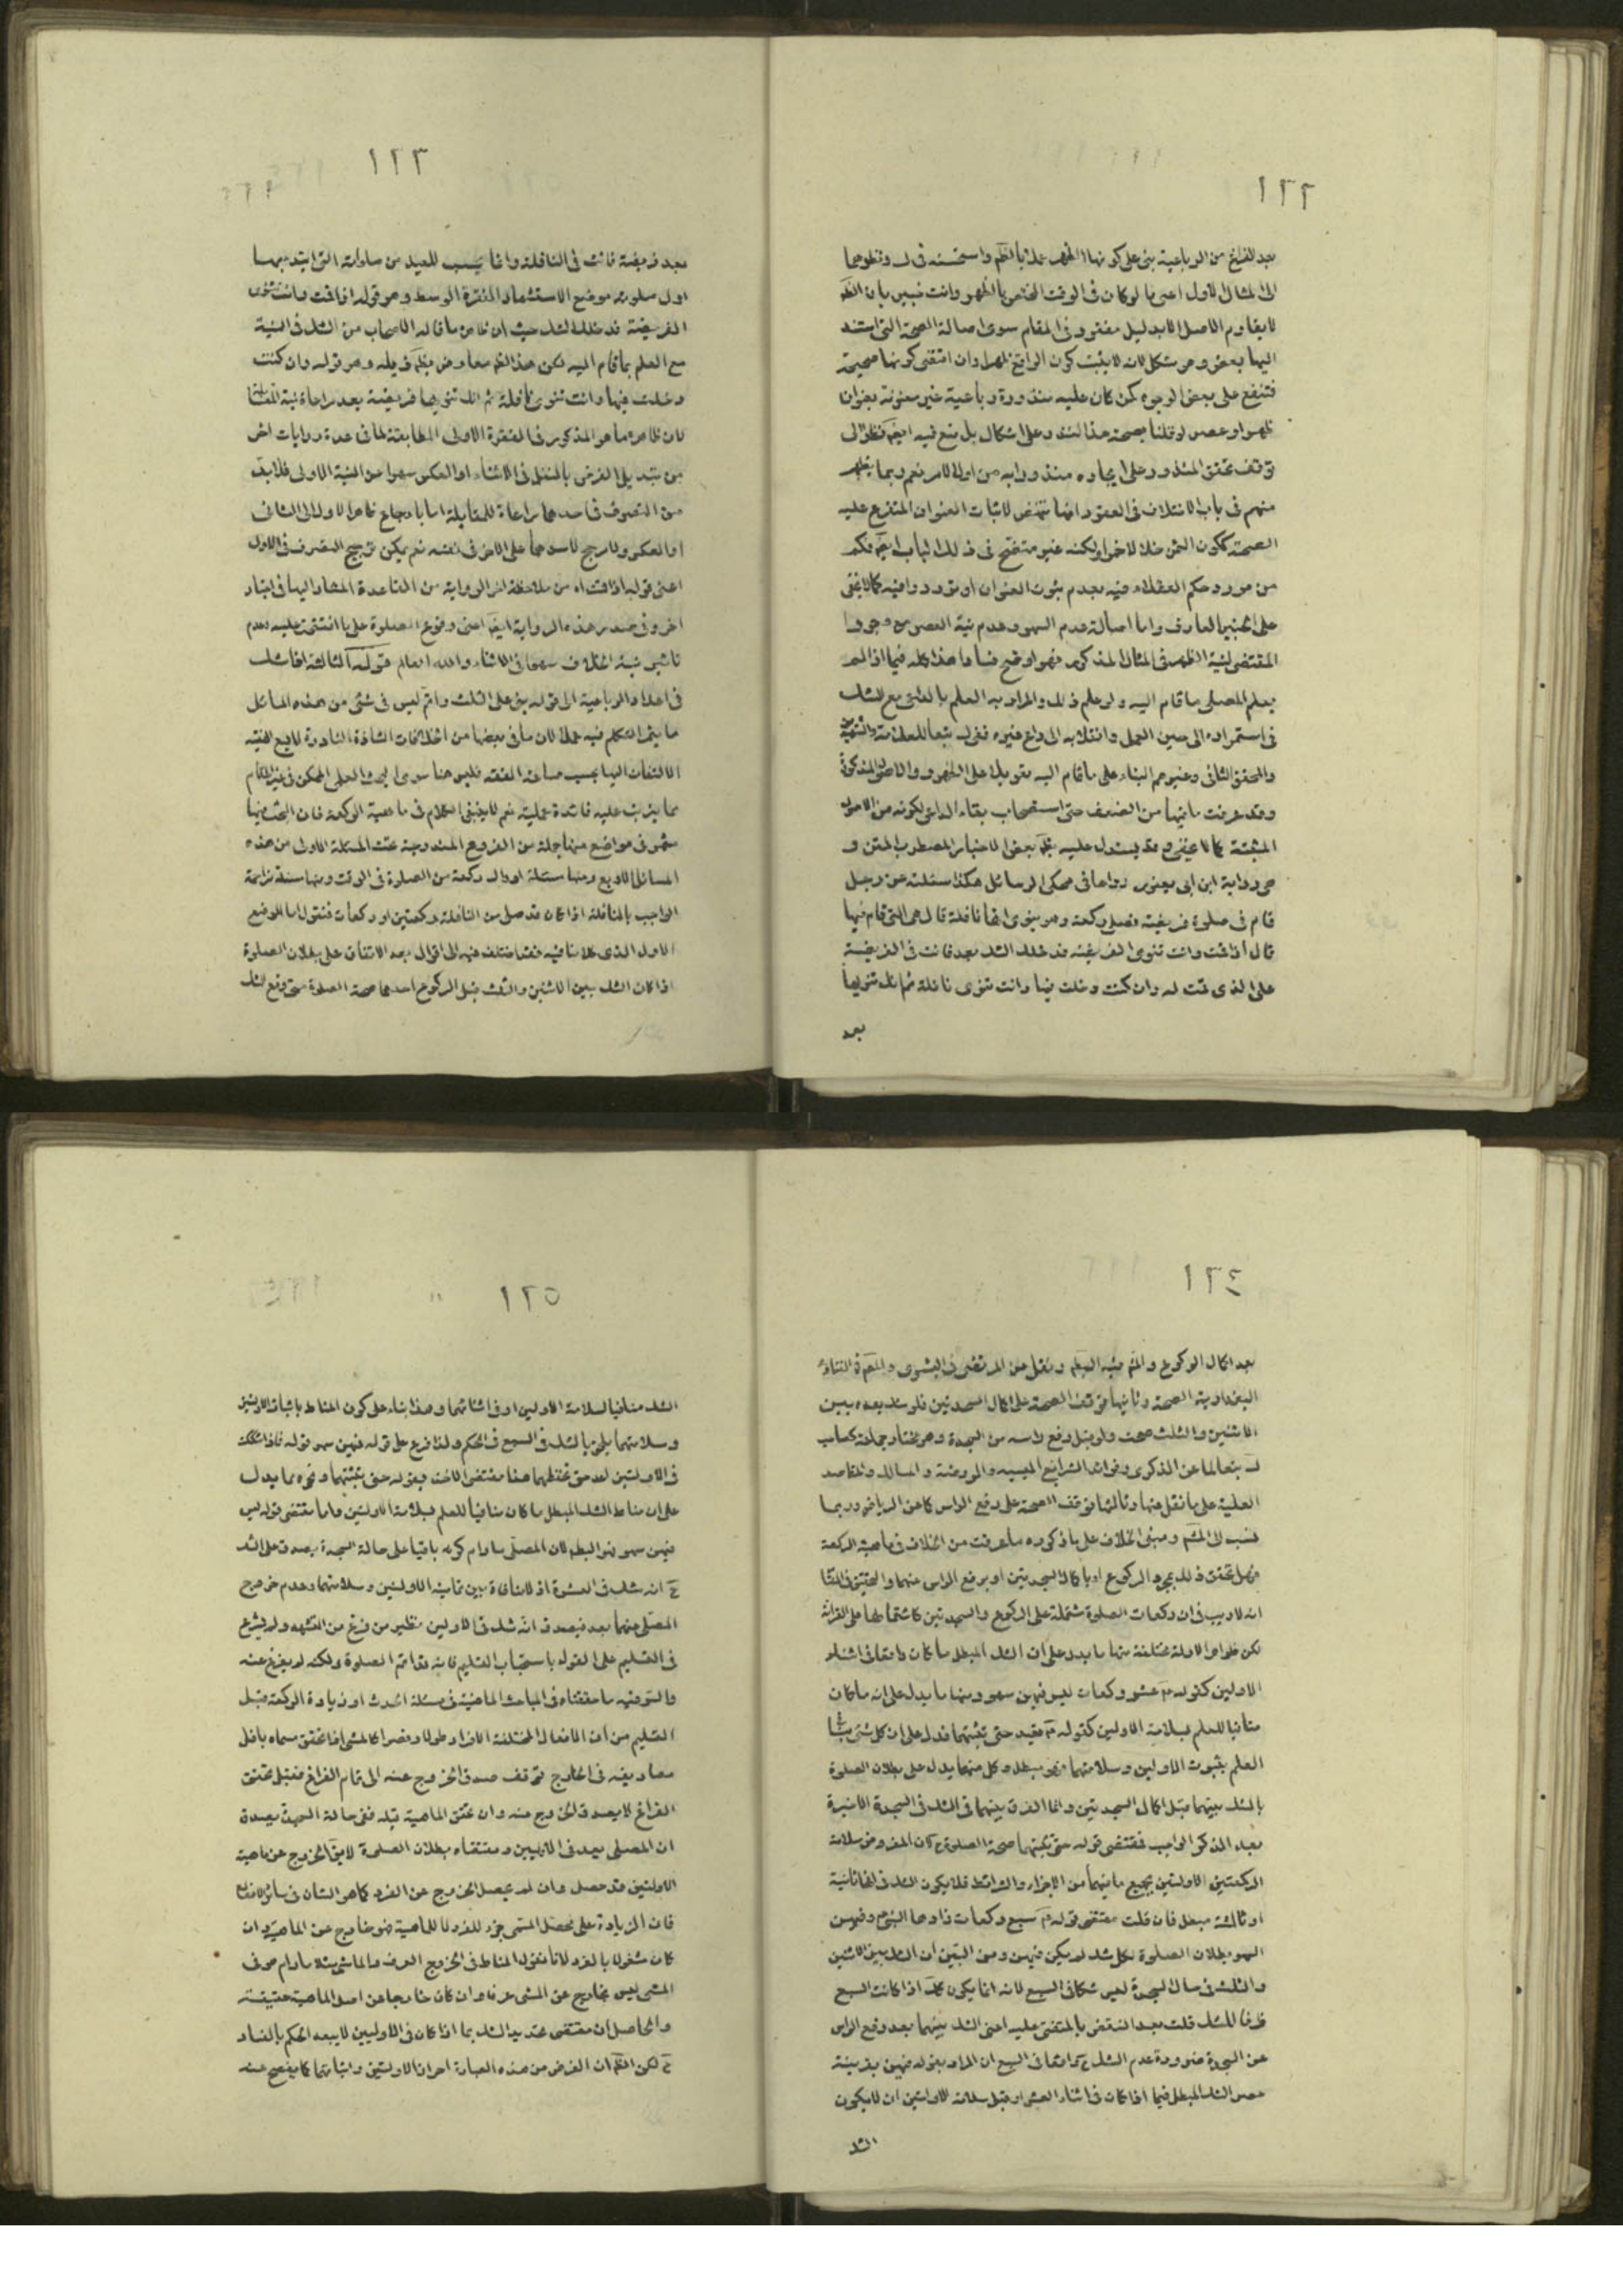 ١٢٢
بعد الفراغ من الرباعية بنى على كونها الظهر عملا بالظم واستحسنه فى ونظرهما
الى المثال الاول اعنى ما لو كان فى الوقت الخاص بالظهر وانت خبير بان الظم
لا يقاوم الاصل الا بدليل مفقود فى المقام سوى اصالة الصحة التى استند
اليها بعض وهو مشكل لانه لا يثبت كون الواقع ظهرا وان اقتضى كونها صحيحة
فتنفع على بعض الوجوه كمن كان عليه منذورة رباعية غير معنونة بعنوان
ظهر او عصر لو قلنا بصحة هذا النذر وعلى اشكال بل منع فيه ايضا نظرا الى
توقف تحقق المنذور على ايجاده منذورا به من اول الامر نعم ربما يظهر
منهم فى باب الاختلاف فى العقود انها تنهض لاثبات العنوان المتفرع عليه
الصحة ككون الثمن خلا لا خمرا ولكنه غير متضح فى ذلك الباب ايضا فكم
من مورد حكم العقلاء فيه بعدم ثبوت العنوان او تردد وافيه كما لا يخفى
على الخبير العارف واما اصالة عدم السهو وعدم نية العصر مع وجود
المقتضى لنية الظهر فى المثال المذكور فهو اوضح فسادا هذا كله فيما اذا لم
يعلم المصلى ما قام اليه ولو علم ذلك والمراد به العلم بالداعى مع الشك
فى استمراره الى حين العمل وانقلابه الى داع غيره ففى تبعا للعلامة والشهيدين
والمحقق الثانى وغيرهم البناء على ما قام اليه تعويلا على الظهور والاصول المذكورة
وقد عرفت ما فيها من الضعف حتى استصحاب بقاء الداعى لكونه من الاصول
المثبتة كما لا يخفى وقد يستدل عليه بظم بعض الاخبار المضطرب المتن و
هى رواية ابن ابى يعفور رواها فى محكى الوسائل هكذا سئلته عن رجل
قام فى صلوة فريضة فصلى ركعة وهو ينوى انها نافلة قال هى التى قام فيها
قال اذا قمت وانت تنوى الفريضة فدخلك الشك بعد فانت فى الفريضة
على الذى قمت له وان كنت دخلت فيها وانت تنوى نافلة ثم انك تنويها
بعد
١٢٣
بعد فريضة فانت فى النافلة وانما يحسب للعبد من صلوته التى ابتدء بها
اول صلوته موضع الاستشهاد الفقرة الوسط وهو قوله اذا قمت وانت تنوى
الفريضة فدخلك الشك حيث ان ظاهره ما قاله الاصحاب من الشك فى النية
مع العلم بما قام اليه لكن هذا الظم معارض بظم ذيله وهو قوله وان كنت
دخلت فيها وانت تنوى نافلة ثم انك تنويها فريضة بعد مراعاة نية المقابلة
لان ظاهره ما هو المذكور فى الفقرة الاولى المطابقة لما فى عدة روايات اخر
من تبديل الفرض بالنفل فى الاثناء او العكس سهوا عن النية الاولى فلابد
من التصرف فى احدهما مراعاة للمقابلة اما بارجاع ظاهر الاول الى الثانى
او العكس ولا مرجح لاحدهما على الاخر فى نفسه نعم يمكن ترجيح التصرف فى الاول
اعنى قوله اذا قمت اه من ملاحظة اخر الرواية من القاعدة المشار اليها فى اخبار
اخر وفى صدر هذه الرواية ايضا اعنى وقوع الصلوة على ما افتتحت عليه وعدم
تاثير نية الخلاف سهوا فى الاثناء والله العالم قوله الثالثة اذا شك
فى اعداد الرباعية الى قوله بنى على الثلث واتم ليس فى شئ من هذه المسائل
ما يثمر التكلم فيه عملا لان ما فى بعضها من الخلافات الشاذة النادرة لا يسع الفقيه
الالتفات اليها بحسب صناعة الفقه فليس هنا سوى البحث العلمى الممكن فى غير المقام
مما يترتب عليه فائدة عملية نعم لا ينبغى الكلام فى ماهية الركعة فان البحث فيها
مثمر فى مواضع منها جملة من الفروع المندرجة تحت المسئلة الاولى من هذه
المسائل الاربع ومنها مسئلة ادراك ركعة من الصلوة فى الوقت ومنها مسئلة مزاحمة
الواجب بالنافلة اذا كان قد صلى من النافلة ركعتين او ركعات فنقول اما الموضع
الاول الذى كلامنا فيه فقد اختلف فيه الى اقوال بعد الاتفاق على بطلان الصلوة
اذا كان الشك بين الاثنين والثلث قبل الركوع احدهما صحة الصلوة متى وقع الشك
١٢٤
بعد اكمال الركوع والتم فيه البعض ونقل عن المرتضى فى البشرى والمحقق فى الفتاوى
البغدادية الصحة وثانيها توقف الصحة على اكمال السجدتين فلو شك بعده بين
الاثنين والثلث صحت ولو قبل رفع راسه من السجدة وهو مختار جماعة كصاحب
تبعا لما عن الذكرى وفوائد الشرايع الميسية والروضة والمسالك والمقاصد
العلية على ما نقل عنها وثالثها توقف الصحة على رفع الراس كما عن الرياض وربما
نسب الى المشهور ومبنى الخلاف على ما ذكروه ما عرفت من الخلاف فى ماهية الركعة
فهل تحقق ذلك بمجرد الركوع او باكمال السجدتين او برفع الراس منهما والتحقيق فى المقام
انه لا ريب فى ان ركعات الصلوة مشتملة على الركوع والسجدتين كاشتمالها على القرائة
لكن ظواهر الادلة مختلفة منها ما يدل على ان الشك المبطل ما كان واقعا فى اثناء
الاولين كقوله عشر ركعات ليس فيهن سهو ومنها ما يدل على انه ما كان
منافيا للعلم بسلامة الاولين كقوله فقيد حتى تثبتهما فدل على ان كل شئ ينافى
العلم بثبوت الاولين وسلامتهما فهو مبطل وكل منهما يدل على بطلان الصلوة
بالشك بينهما قبل اكمال السجدتين وانما الفرق بينهما فى الشك فى السجدة الاخيرة
بعد الذكر الواجب فمقتضى قوله حتى تثبتهما صحة الصلوة لان المفروض سلامة
الركعتين الاولتين بجميع ما فيهما من الاجزاء والشرائط فلا يكون الشك فى انها ثانية
او ثالثة مبطل فان قلت مقتضى قوله سبع ركعات زادها النبى وفيهن
السهو بطلان الصلوة بكل شك لم يكن فيهن ومن البين ان الشك بين الاثنين
والثلث فى حال السجدة ليس شكا فى السبع لانه انما يكون كذلك اذا كانت السبع
ظرفا للشك قلت بعد النقض بالمتفق عليه اعنى الشك بينهما بعد رفع الراس
عن السجدة ضرورة عدم الشك واقعا فى السبع ان المراد بقوله فيهن بقرينة
حصر الشك المبطل فيما اذا كان فى اثناء العشر او قبل سلامة الاولتين ان لا يكون
الشك
١٢٥
الشك منافيا لسلامة الاولين او فى اثنائهما وهذا بناء على كون المناط باثبات الاولتين
وسلامتهما يلحق بالشك فى السبع فى الحكم ولذا فرع على قوله فيهن سهو قوله فاذا شككت
فى الاولتين اعد حتى تحفظهما هذا مقتضى الاخذ بقوله حتى تثبتهما ونحوه مما يدل
على ان مناط الشك المبطل ما كان منافيا للعلم بسلامة الاولتين واما مقتضى قوله ليس
فيهن سهو فهو البطلان لان المصلى مادام كونه باقيا على حالة السجدة يصدق على الشك
ح انه شك فى العشرة اذ لا منافاة بين تمامية الاولتين وسلامتهما وعدم خروج
المصلى عنهما بعد فيصدق انه شك فى الاولين نظير من فرغ من التشهد ولم يشرع
فى التسليم على القول باستحباب التسليم فانه قد اتم الصلوة ولكنه لم يفرغ عنه
والسر فيه ما حققناه فى المباحث الماضية فى مسئلة الحدث او زيادة الركعة قبل
التسليم من ان الافعال المختلفة الافراد طولا وقصرا كالمشى اذا تحقق مسماه باقل
مصاديقه فى الخارج توقف صدق الخروج عنه الى تمام الفراغ فقبل تحقق
الفراغ لا يصدق الخروج منه وان تحقق الماهية قبله ففى حالة السجدة يصدق
ان المصلى يعد فى الاوليين ومقتضاه بطلان الصلوة لايق الخروج عن ماهية
الاولتين قد حصل وان لم يحصل الخروج عن الفرد كما هو الشان فى سائر الافعال
فان الزيادة على محصل المسمى جزء للفرد لا للماهية فهو خارج عن الماهية وان
كان مشغولا بالفرد لانا نقول المناط فى الخروج العرف والماشى مثلا مادام حرف
المشى ليس بخارج عن المشى عرفا وان كان خارجا عن اصل الماهية حقيقة
والحاصل ان مقتضى تحديد الشك بما اذا كان فى الاوليين لا يبعد الحكم بالفساد
ح لكن الظم ان الغرض من هذه العبارة احراز الاولتين واثباتهما كما يفصح عنه